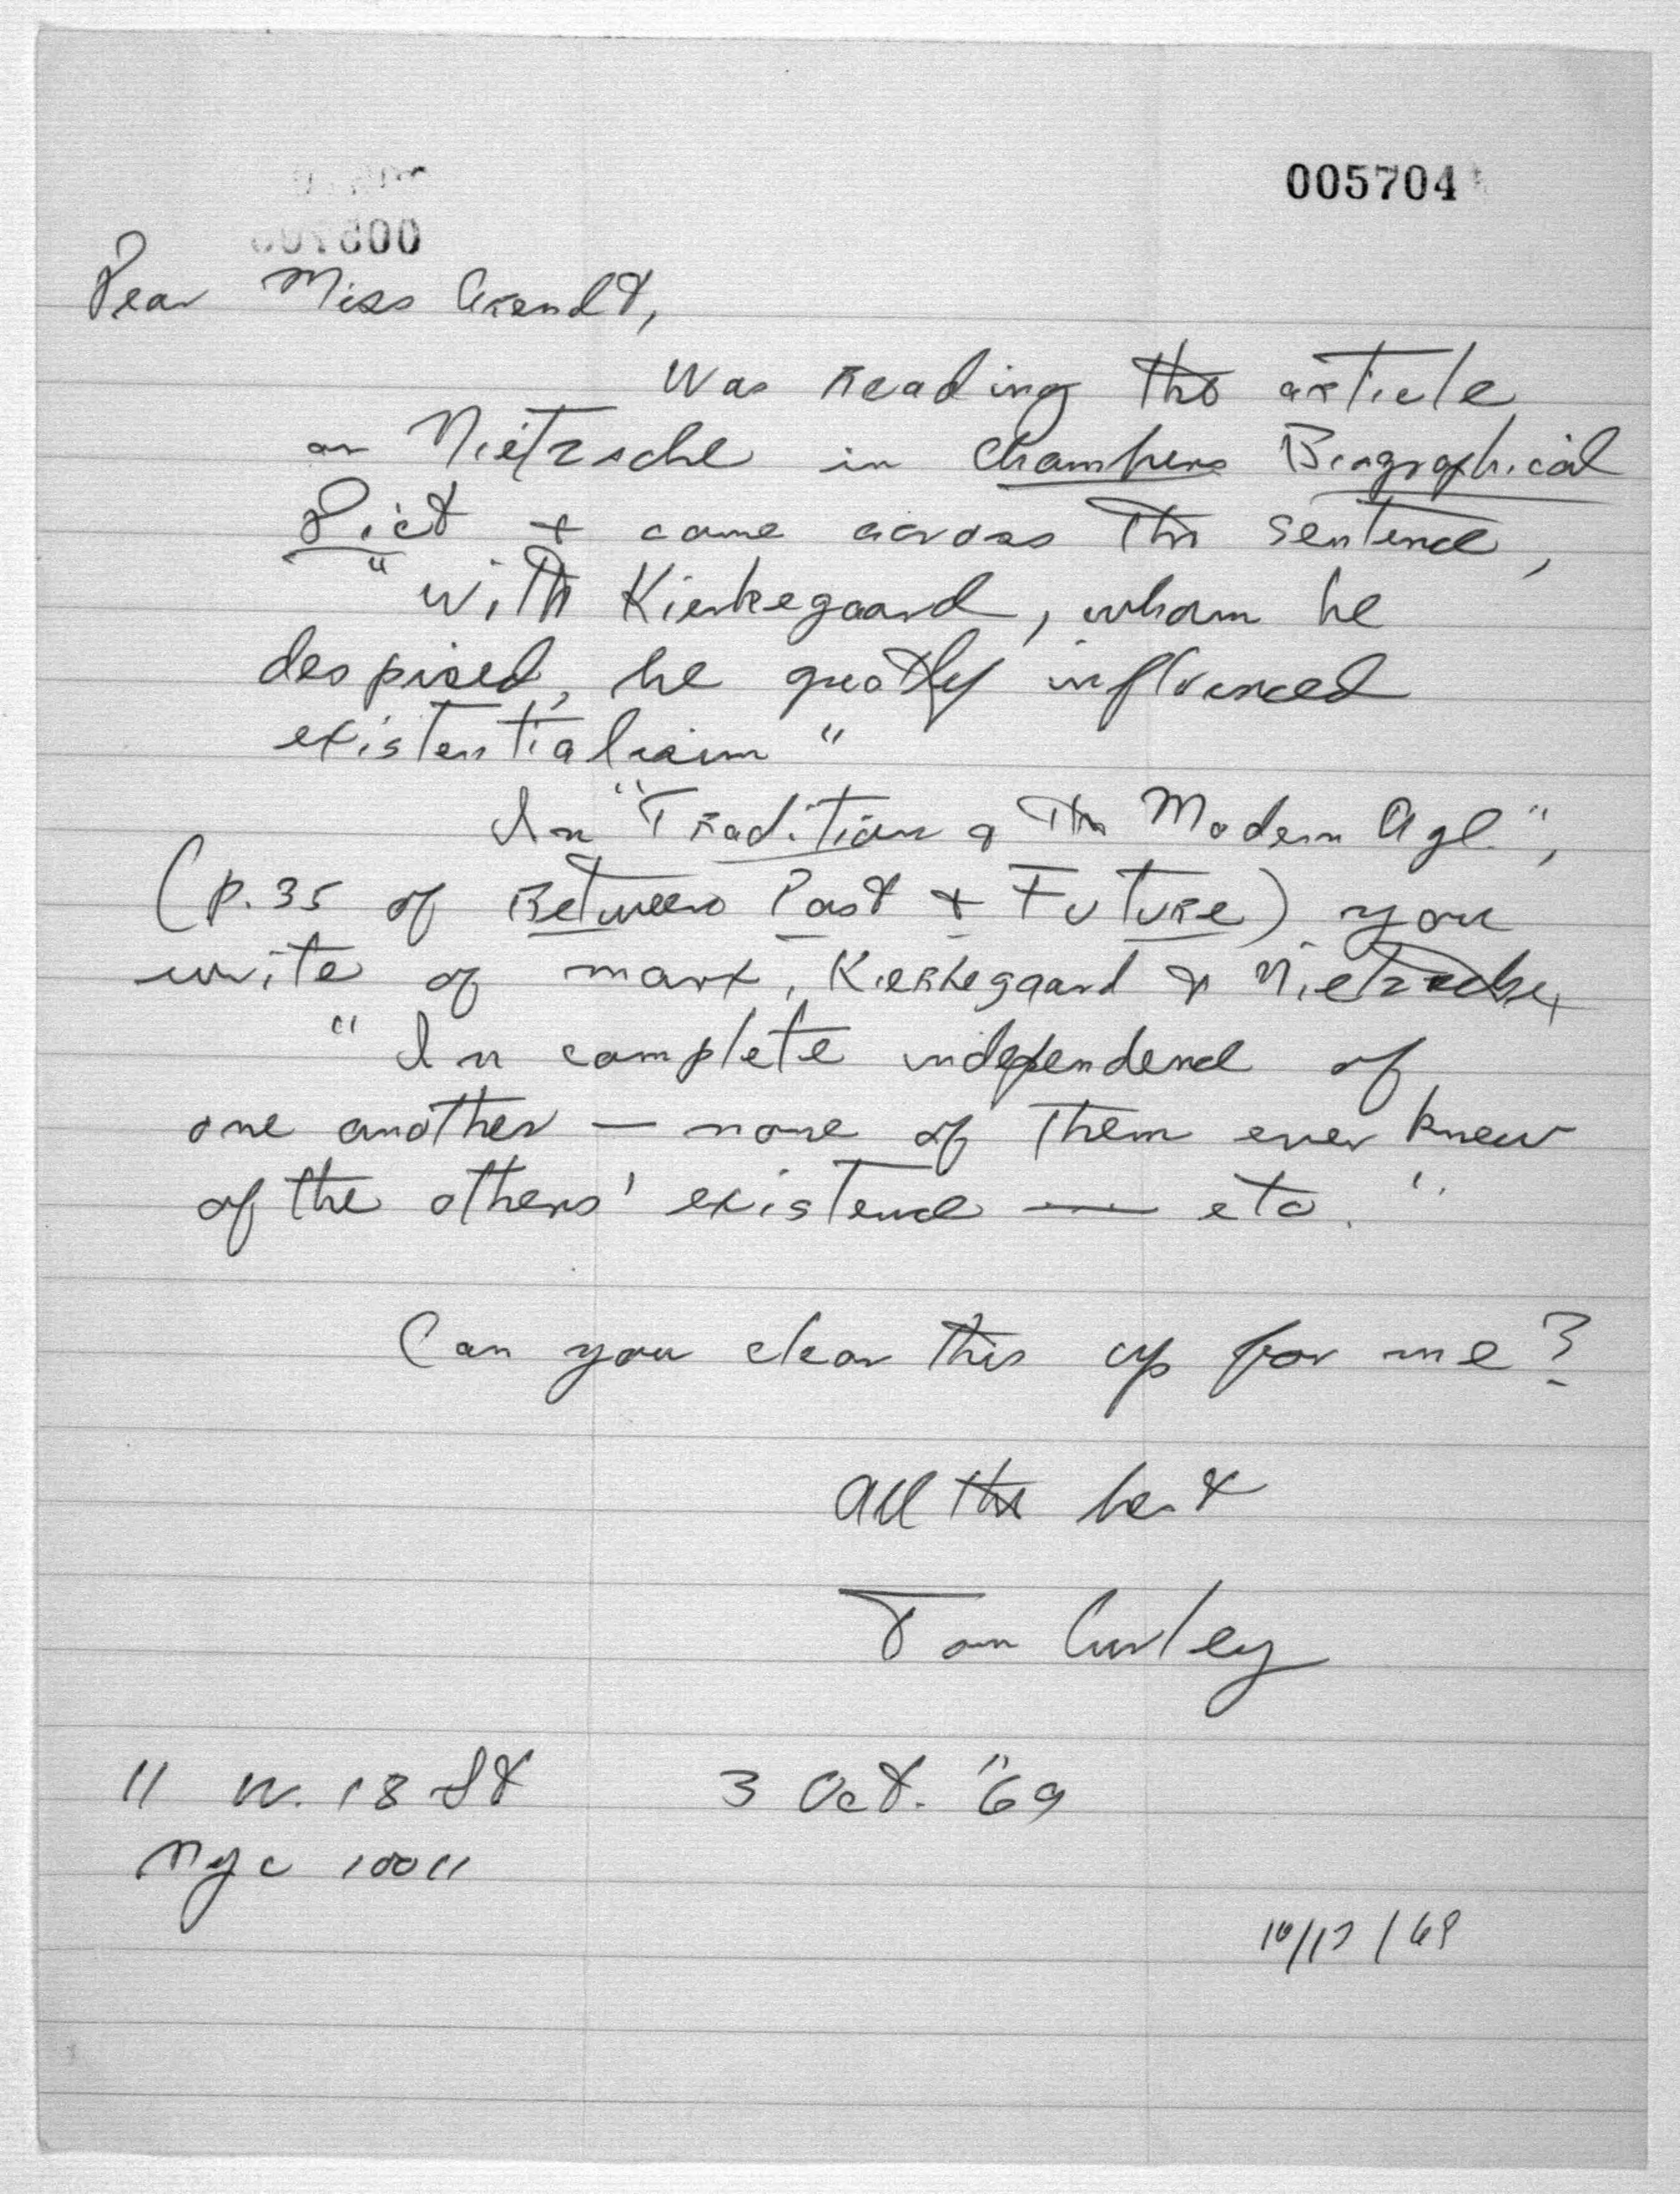 005704
Dear Miss Arendt,
Was reading the article
on Nietzsche in Chambers Biographical
Dict + came across the sentence,
"with Kierkegaard, whom he
despised, he greatly influenced
existentialism"
In "Tradition & the Modern Age",
(p. 35 of Between Past + Future) you
write of Marx, Kierkegaard & Nietzsche,
"In complete independence of
one another — none of them ever knew
of the others' existence — etc."
Can you clear this up for me?
All the best
Tom Curley
11 W. 18 St 3 Oct. "69
NYC 10011
10/17/69